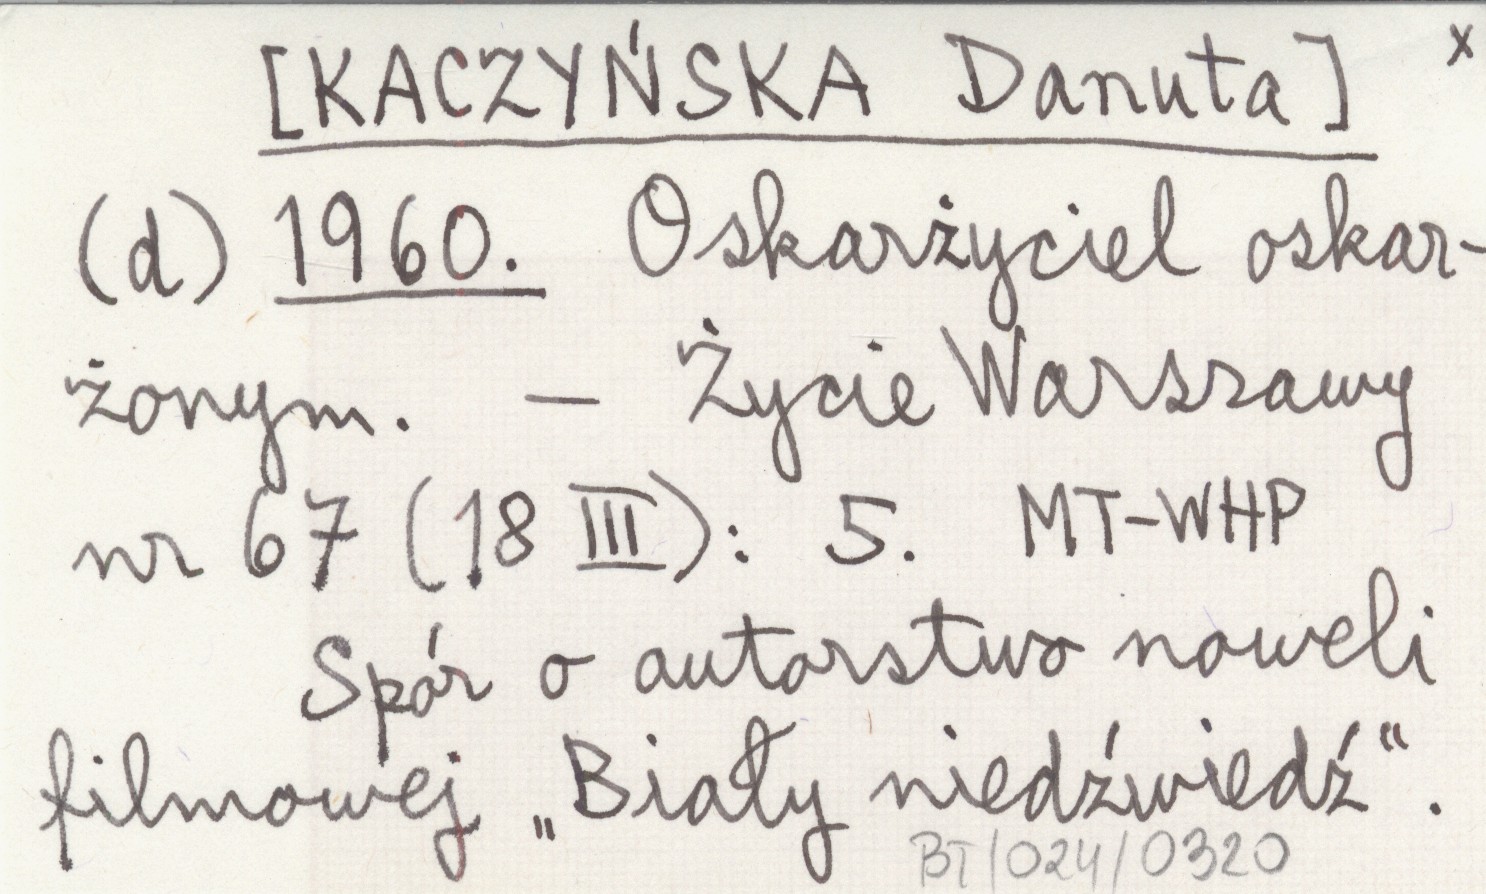 [KACZYŃSKA Danuta] x
(d) 1960. Oskarżyciel oskar-
żonym. — Życie Warszawy
nr 67 (18 III): 5. MT-WHP
Spór o autorstwo noweli
filmowej „Biały niedźwiedź“.
BT/024/0320